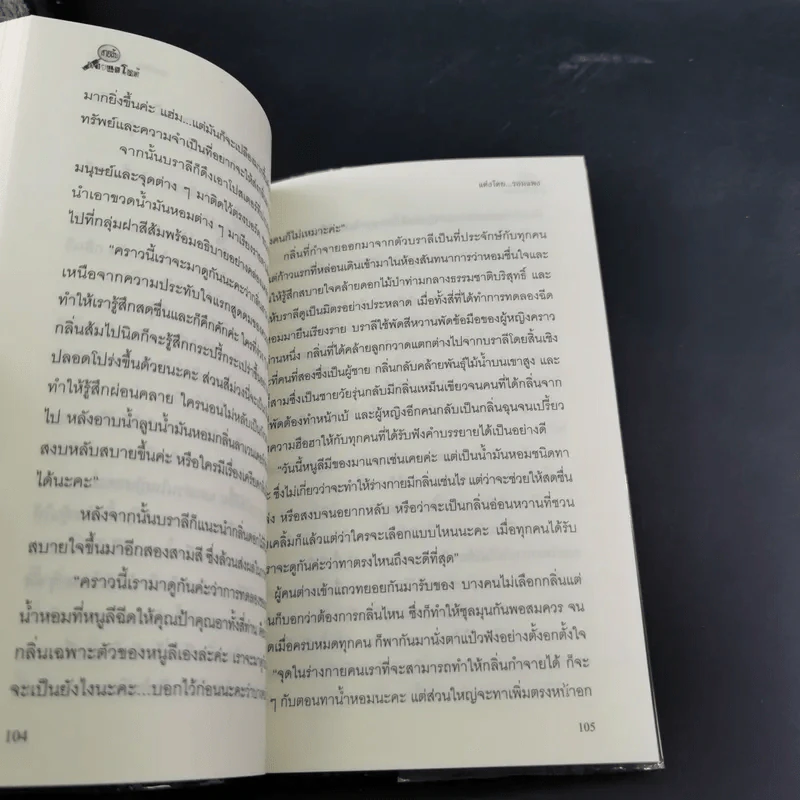 มากยิ่งขึ้นค่ะ แฮ่ม...แต่มันก็จะเปลือง
ทรัพย์และความจำเป็นที่อยากจะใช้
จากนั้นบราลีก็ดึงเอาโปสเตอร์
มนุษย์และจุดต่าง ๆ มาติดไว้ตรงบอร์ด
นำเอาขวดน้ำมันหอมต่าง ๆ มาเรียง
ไปที่กลุ่มฝาสีส้มพร้อมอธิบายอย่าง
“คราวนี้เราจะมาดูกันนะคะว่า
เหนือจากความประทับใจแรกสูดดม
ทำให้เรารู้สึกสดชื่นและก็คึกคักค่ะ ใคร
กลิ่นส้มไปนิดก็จะรู้สึกกระปรี้กระเปร่าขึ้น
ปลอดโปร่งขึ้นด้วยนะคะ ส่วนสีม่วงนี่จะ
ทำให้รู้สึกผ่อนคลาย ใครนอนไม่หลับ
ไป หลังอาบน้ำลูบน้ำมันหอมกลิ่นลาเวนเดอร์
สงบหลับสบายขึ้นค่ะ หรือใครมีเรื่องเครียด
ได้นะคะ”
หลังจากนั้นบราลีก็แนะนำกลิ่น
สบายใจขึ้นมาอีกสองสามสี ซึ่งล้วนส่งผล
“คราวนี้เรามาดูกันค่ะว่าการทดลอง
น้ำหอมที่หนูลีฉีดให้คุณป้าคุณอาทั้งสี่ท่าน
กลิ่นเฉพาะตัวของหนูลีเองล่ะค่ะ เราจะมา
จะเป็นยังไงนะคะ...บอกไว้ก่อนนะคะว่า
104
แต่งโดย...รอยแพง
คนก็ไม่เหมาะค่ะ”
กลิ่นที่กำจายออกมาจากตัวบราลีเป็นที่ประจักษ์กับทุกคน
แต่ก้าวแรกที่หล่อนเดินเข้ามาในห้องสันทนาการว่าหอมชื่นใจและ
ให้รู้สึกสบายใจคล้ายดอกไม้ป่าท่ามกลางธรรมชาติบริสุทธิ์ และ
ให้บราลีดูเป็นมิตรอย่างประหลาด เมื่อทั้งสี่ที่ได้ทำการทดลองฉีด
หอมมายืนเรียงราย บราลีใช้พัดสีหวานพัดข้อมือของผู้หญิงคราว
่านหนึ่ง กลิ่นที่ได้คล้ายลูกกวาดแตกต่างไปจากบราลีโดยสิ้นเชิง
ที่คนที่สองซึ่งเป็นผู้ชาย กลิ่นกลับคล้ายพันธุ์ไม้น้ำบนเขาสูง และ
สามซึ่งเป็นชายวัยรุ่นกลับมีกลิ่นเหม็นเขียวจนคนที่ได้กลิ่นจาก
พัดต้องทำหน้าเบ้ และผู้หญิงอีกคนกลับเป็นกลิ่นฉุนจนเปรี้ยว
ความฮือฮาให้กับทุกคนที่ได้รับฟังคำบรรยายได้เป็นอย่างดี
“วันนี้หนูลีมีของมาแจกเช่นเคยค่ะ แต่เป็นน้ำหอมชนิดทา
ซึ่งไม่เกี่ยวว่าจะทำให้ร่างกายมีกลิ่นเช่นไร แต่ว่าจะช่วยให้สดชื่น
หรือสงบจนอยากหลับ หรือว่าจะเป็นกลิ่นอ่อนหวานที่ชวน
เคลิ้มก็แล้วแต่ว่าใครจะเลือกแบบไหนนะคะ เมื่อทุกคนได้รับ
ราจะดูกันค่ะว่าทาตรงไหนถึงจะดีที่สุด”
ผู้คนต่างเข้าแถวทยอยกันมารับของ บางคนไม่เลือกกลิ่นแต่
นก็บอกว่าต้องการกลิ่นไหน ซึ่งก็ทำให้ชุลมุนกันพอสมควร จน
เมื่อครบหมดทุกคน ก็พากันมานั่งตาแป๋วฟังอย่างตั้งอกตั้งใจ
“จุดในร่างกายคนเราที่จะสามารถทำให้กลิ่นกำจายได้ ก็จะ
ๆ กับตอนทาน้ำหอมนะคะ แต่ส่วนใหญ่จะทาเพิ่มตรงหน้าอก
105